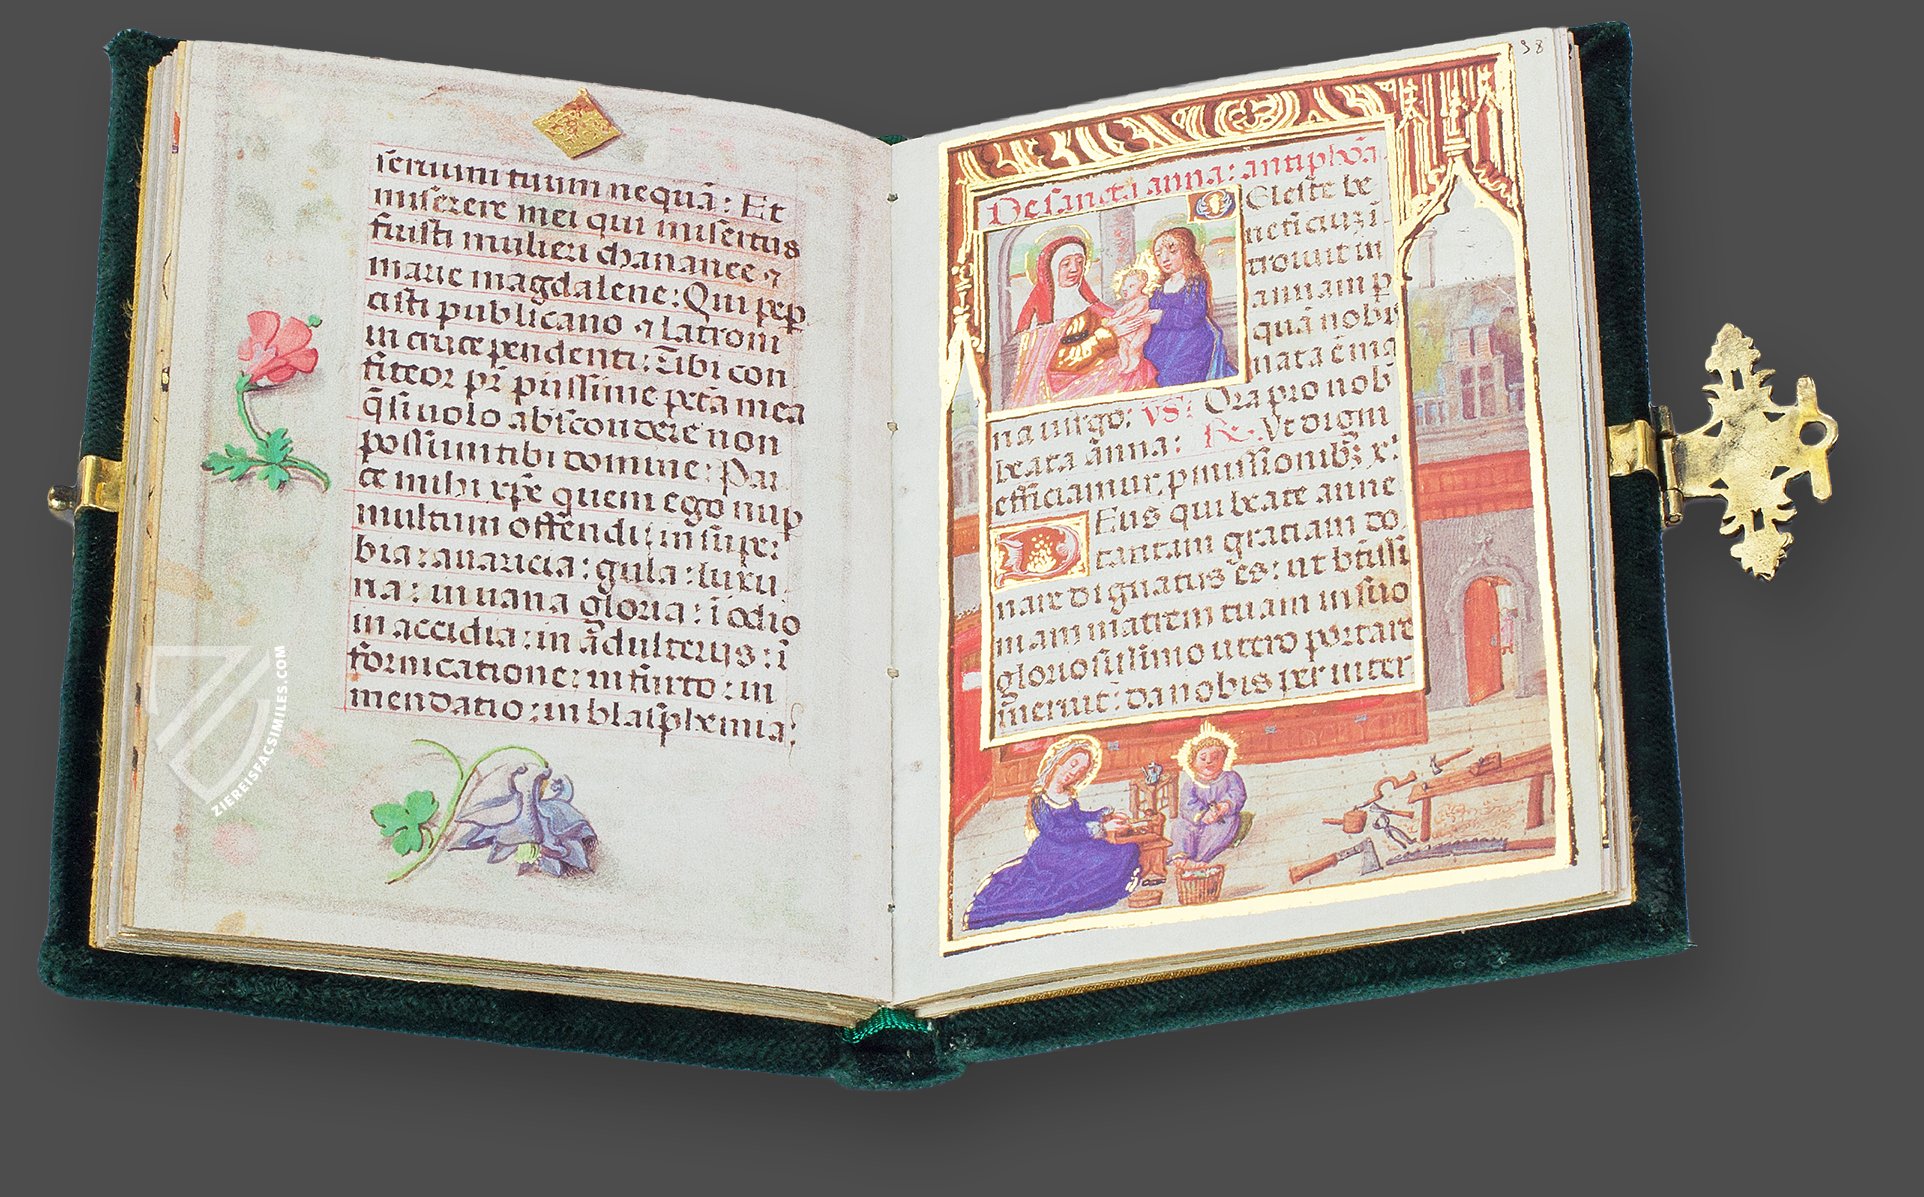 seruum tuum nequā: Et
miserere mei qui misertus
fuisti mulieri chananee ⁊
marie magdalene: Qui pep
cisti publicano ⁊ latroni
in cruce pendenti: Tibi con
fiteor pr̄ piissime pctā mea
q̄ si uolo abscondere non
possum tibi domine: Par
ce mihi xp̄e quem ego nup
multum offendi: in super
bia: auaricia: gula: luxu
ria: in uana gloria: ī odio
in accidia: in adulteriis: ī
fornicatione: in furto: in
mendatio: in blasphemia:
ZIEREISFACSIMILES.COM
98
De sancta anna: antiphōa
Celeste be
neficiū ī
trouiit in
annam p
quā nobis
nata ē ma
ria uirgo: vs: Ora pro nob
beata anna: R. Vt digni
efficiamur pmissionibꝫ xp̄i:
Deus qui beate anne
tantam gratiam do
nare dignatus es: ut btissi
mam matrem tuam in suo
gloriosissimo utero portare
meruit: da nobis per inter